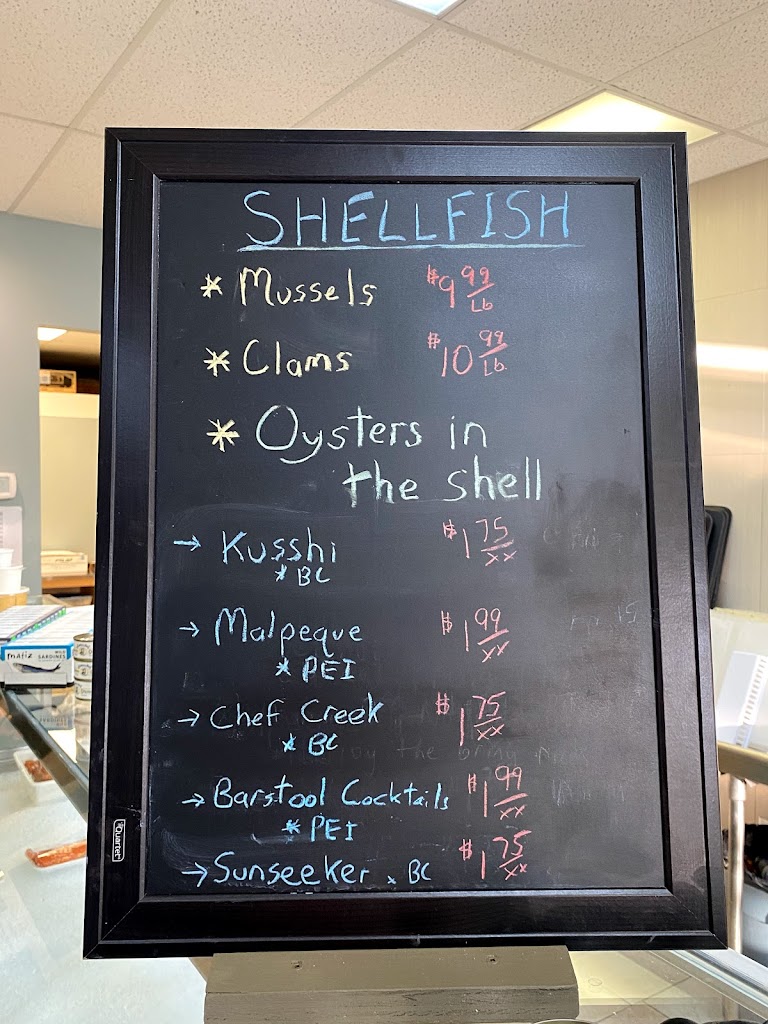 SHELLFISH
* Mussels $9 99/Lb
* Clams $10 99/Lb.
* Oysters in
the shell
→ Kusshi $1 75/xx
* BC
→ Malpeque $1 99/xx
* PEI
→ Chef Creek $1 75/xx
* BC
→ Barstool Cocktails $1 99/xx
* PEI
→ Sunseeker * BC $1 75/xx
Quartet
matiz
SARDINES